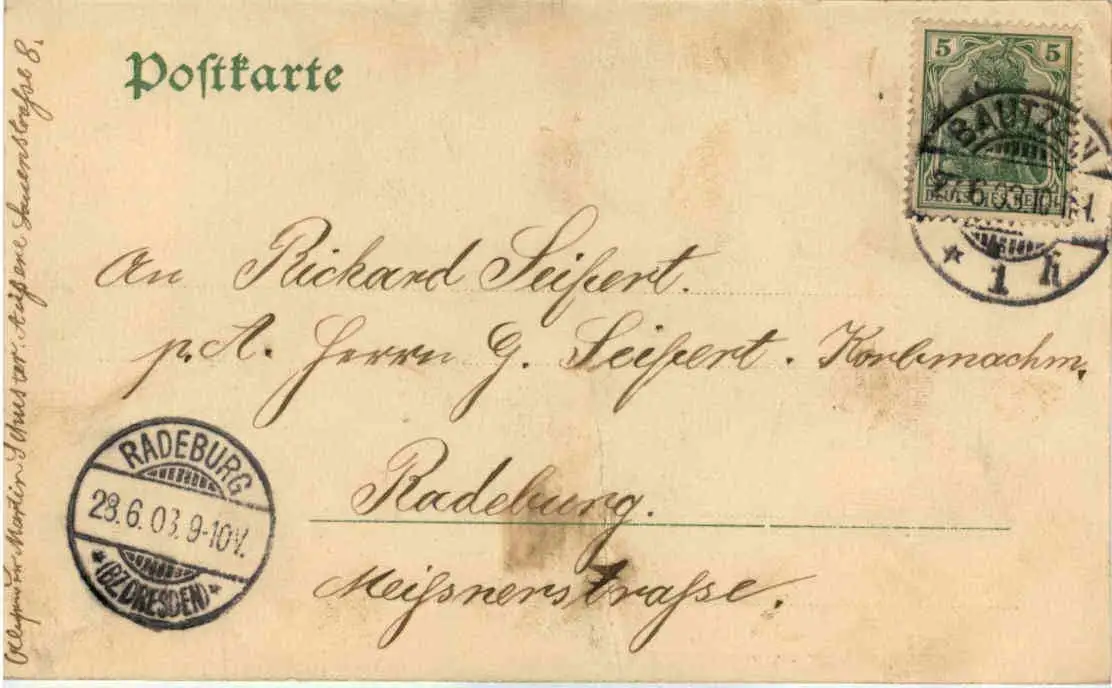 Postkarte
5 5
DEUTSCHES REICH
BAUTZEN
27.6.03.10-
1 h
An Richard Seifert.
p. A. Herrn G. Seifert. Korbmachm.
Radeburg.
Meißnerstraße.
RADEBURG
28.6.03.9-10V.
*(BZ.DRESDEN)*
Martin Schuster. Äußere Lauenstraße 8.